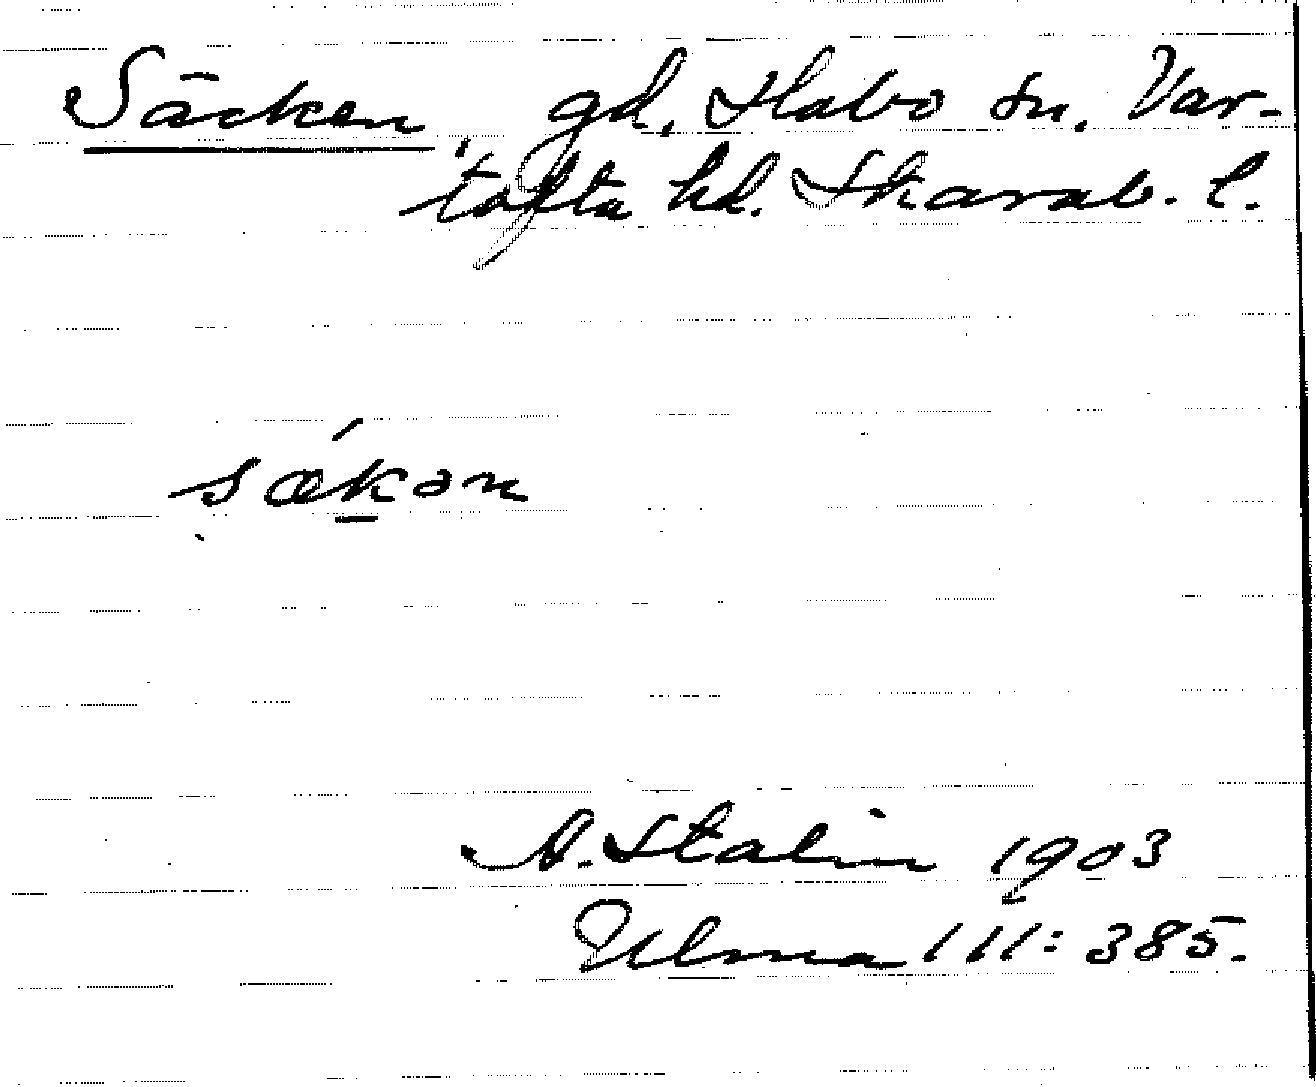 Säcken gd. Habo sn. Var-
tofta hd. Skarab. l.
sækən
A. Stalin 1903
Ulma 111: 385.